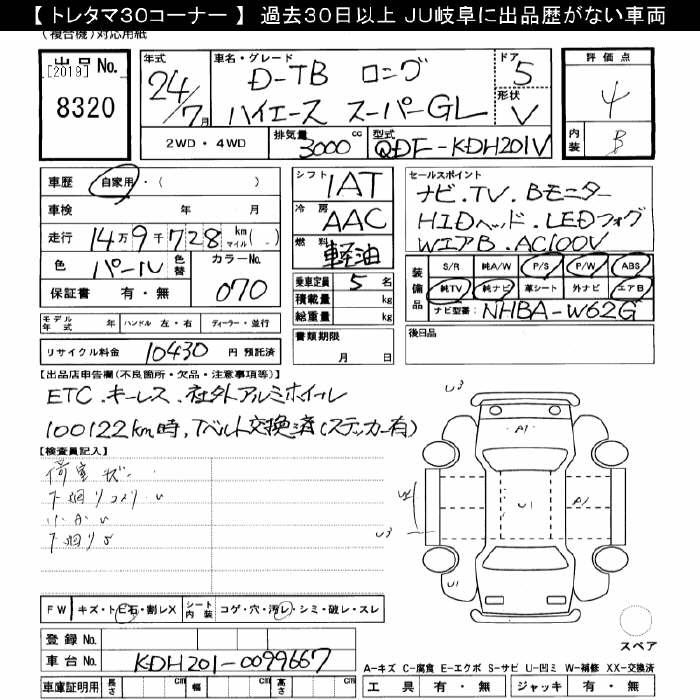 【 トレタマ30コーナー 】 過去30日以上 JU岐阜に出品歴がない車両
(複合機)対応用紙
出品 No.
[2019]
8320
年式
24/7月
車名・グレード
D-TB ロング
ハイエース スーパーGL
ドア
5
形状
V
評価点
4
内装
B
2WD・4WD
排気量
3000 cc
型式
QDF-KDH201V
車歴 自家用・( )
車検 年 月
走行 14万9千728 km マイル( )
色 パール 色替
カラーNo.
070
保証書 有・無
シフト
IAT
冷房
AAC
燃料
軽油
乗車定員 5 名
積載量 kg
総重量 kg
セールスポイント
ナビ.TV.Bモニター
HIDヘッド.LEDフォグ
WエアB.AC100V
装備品
S/R 純A/W P/S P/W ABS
純TV 純ナビ 革シート 外ナビ エアB
ナビ型番: NHBA-W62G
モデル年式 年 ハンドル 左・右 ディーラー・並行
リサイクル料金 10430 円 預託済
書類期限
月 日
後日品
【出品店申告欄(不良箇所・欠品・注意事項等)】
ETC.キーレス.社外アルミホイール
100122km時,Tベルト交換済(ステッカー有)
【検査員記入】
荷室
下廻り
下廻り
U3
A1
U1
A1
U3
U1
FW キズ・トビ石・割レX
シート内装 コゲ・穴・汚レ・シミ・破レ・スレ
登録 No.
車台 No. KDH201-0099667
車庫証明用 長さ cm 幅 cm 高さ cm
スペア
A-キズ C-腐食 E-エクボ S-サビ U-凹ミ W-補修 XX-交換済
工具 有・無 ジャッキ 有・無